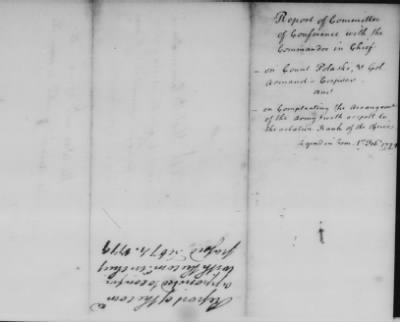 Report of Committee
of Conference with the
Commander in Chief
- on Count Polaski, & Col
Armand's Corps
and
- on Compleating the Arrangemt
of the Army with respect to
the relative Rank of the Officers
Agreed in Com. 1st Feb.
Report of the Com
appointed to confer
with the Com in Chief
passed Feb 1779